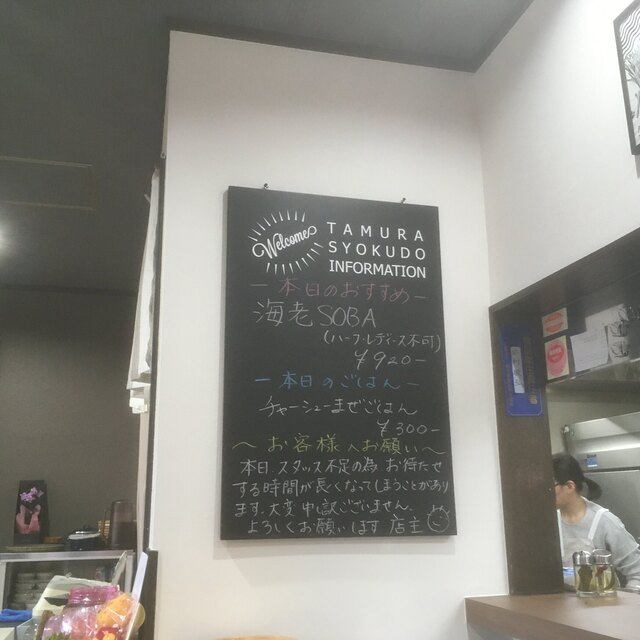 Welcome
TAMURA
SYOKUDO
INFORMATION
― 本日のおすすめ ―
海老SOBA
(ハーフ・レディース不可)
¥920-
― 本日のごはん ―
チャーシューまぜごはん
¥300-
～ お客様へお願い ～
本日、スタッフ不足の為 お待たせ
する時間が長くなってしまうことがあり
ます。大変申し訳ございません、
よろしくお願いします 店主